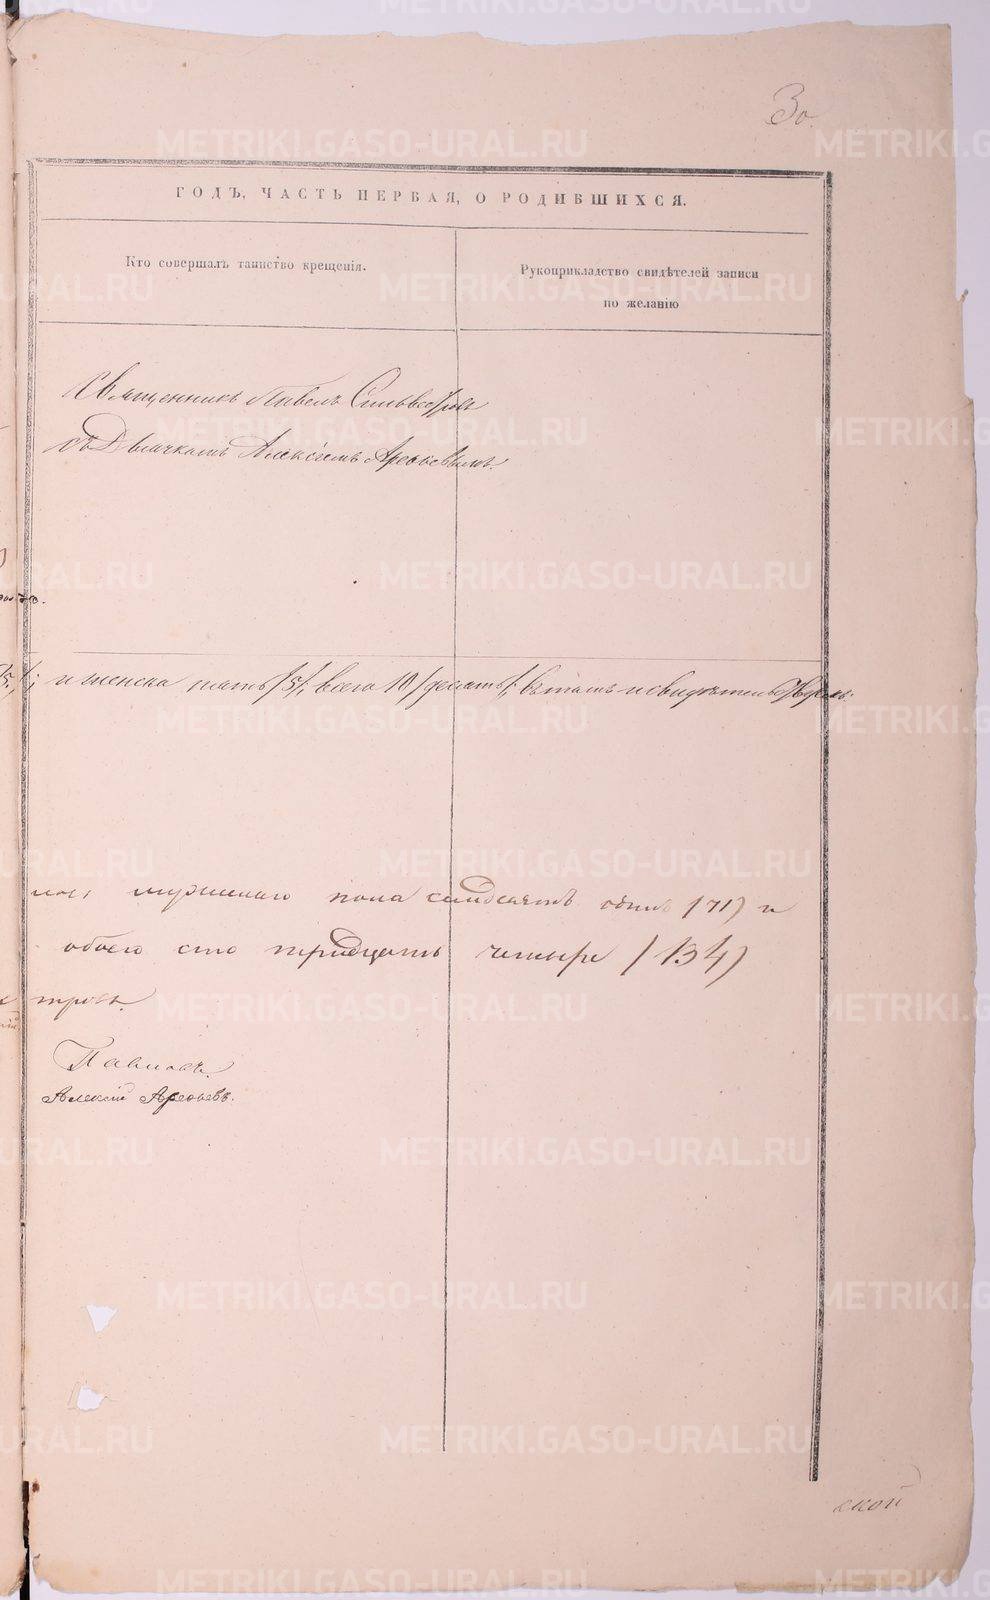 30
ГОДЪ, ЧАСТЬ ПЕРВАЯ, О РОДИВШИХСЯ.
Кто совершалъ таинство крещенія.
Рукоприкладство свидѣтелей записи
по желанію
Священникъ Павелъ Сильвестровъ
съ Дьячкомъ Алексіемъ Арефьевымъ.
и женска пять /5/, всего 10 /десять/; въ томъ и свидѣтельствуемъ:
мужескаго пола семдесятъ одинъ /71/ и
обоего сто тридцать четыре /134/
тровъ.
Павловъ.
Алексій Арефьевъ.
ской
METRIKI.GASO-URAL.RU